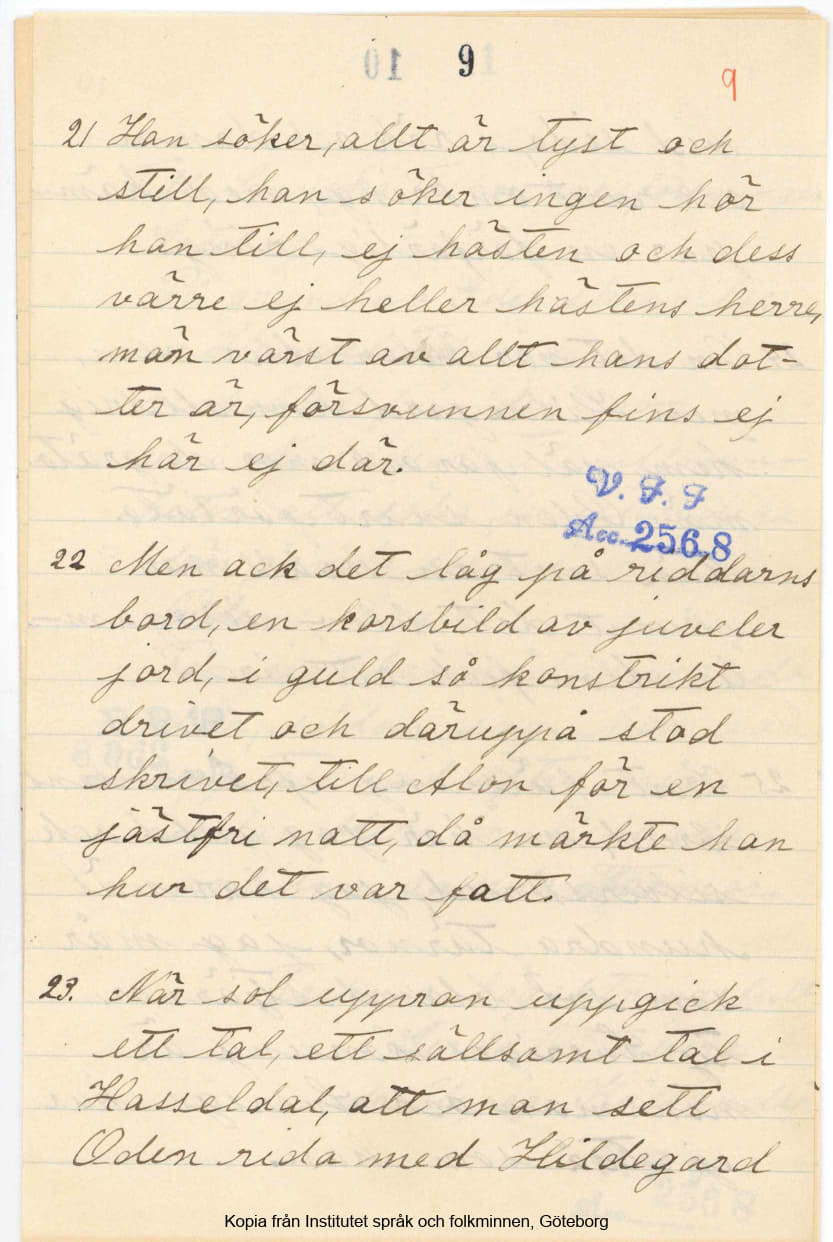 9
9
21 Han söker, allt är tyst och
still, han söker ingen hör
han till, ej hästen och dess
värre ej heller hästens herre,
män värst av allt hans dot-
ter är, försvunnen fins ej
här ej där.
V. F. F
Acc. 2568
22 Men ack det låg på riddarns
bord, en korsbild av juveler
jord, i guld så konstrikt
drivet och däruppå stod
skrivet, till Alon för en
jästfri natt, då märkte han
hur det var fatt.
23. När sol uppran uppgick
ett tal, ett sällsamt tal i
Hasseldal, att man sett
Oden rida med Hildegard
Kopia från Institutet språk och folkminnen, Göteborg